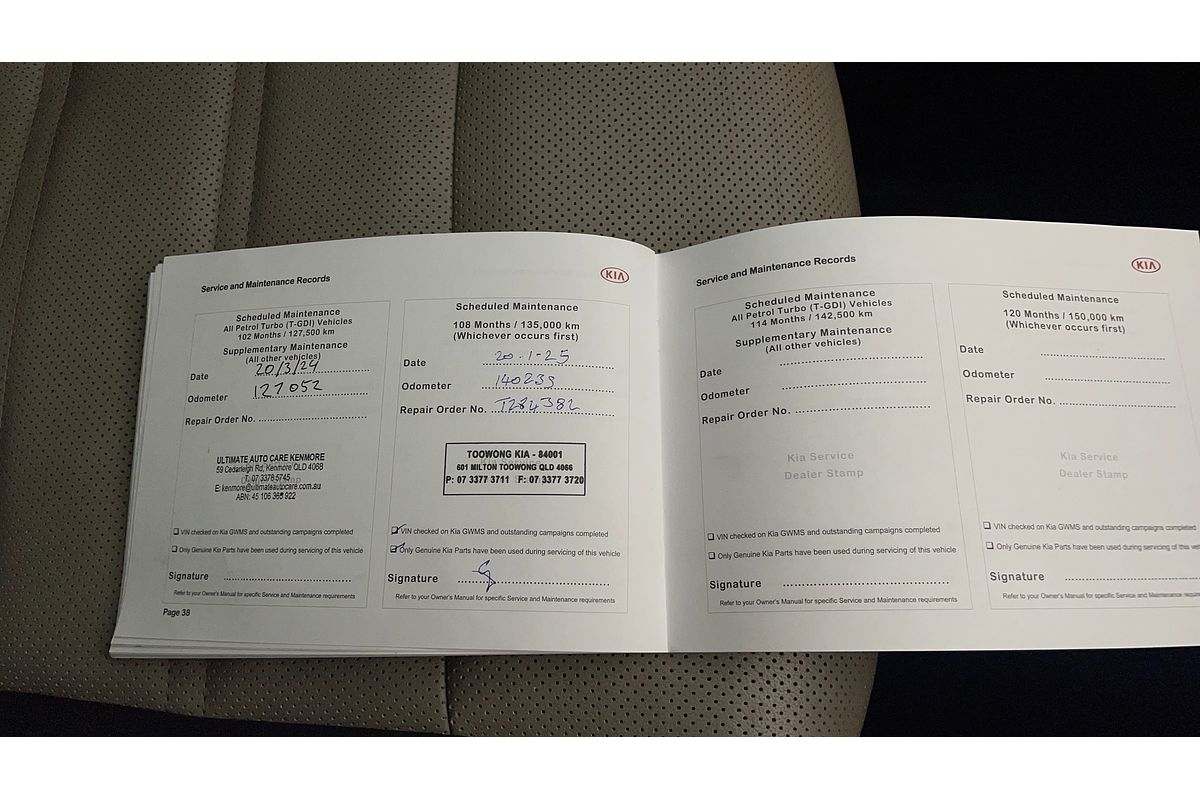 Service and Maintenance Records
KIA
Scheduled Maintenance
All Petrol Turbo (T-GDI) Vehicles
102 Months / 127,500 km
Supplementary Maintenance
(All other vehicles)
Date 20/3/24
Odometer 127052
Repair Order No.
ULTIMATE AUTO CARE KENMORE
59 Cedarleigh Rd, Kenmore QLD 4068
T: 07 3378 5745
E: kenmore@ultimateautocare.com.au
ABN: 45 106 368 922
VIN checked on Kia GWMS and outstanding campaigns completed
Only Genuine Kia Parts have been used during servicing of this vehicle
Signature
Refer to your Owner's Manual for specific Service and Maintenance requirements
Page 38
Scheduled Maintenance
108 Months / 135,000 km
(Whichever occurs first)
Date 20-1-25
Odometer 140239
Repair Order No. T284382
TOOWONG KIA - 84001
601 MILTON TOOWONG QLD 4066
P: 07 3377 3711 F: 07 3377 3720
VIN checked on Kia GWMS and outstanding campaigns completed
Only Genuine Kia Parts have been used during servicing of this vehicle
Signature
Refer to your Owner's Manual for specific Service and Maintenance requirements
Service and Maintenance Records
KIA
Scheduled Maintenance
All Petrol Turbo (T-GDI) Vehicles
114 Months / 142,500 km
Supplementary Maintenance
(All other vehicles)
Date
Odometer
Repair Order No.
Kia Service
Dealer Stamp
VIN checked on Kia GWMS and outstanding campaigns completed
Only Genuine Kia Parts have been used during servicing of this vehicle
Signature
Refer to your Owner's Manual for specific Service and Maintenance requirements
Scheduled Maintenance
120 Months / 150,000 km
(Whichever occurs first)
Date
Odometer
Repair Order No.
Kia Service
Dealer Stamp
VIN checked on Kia GWMS and outstanding campaigns completed
Only Genuine Kia Parts have been used during servicing of this
Signature
Refer to your Owner's Manual for specific Service and Maintenance